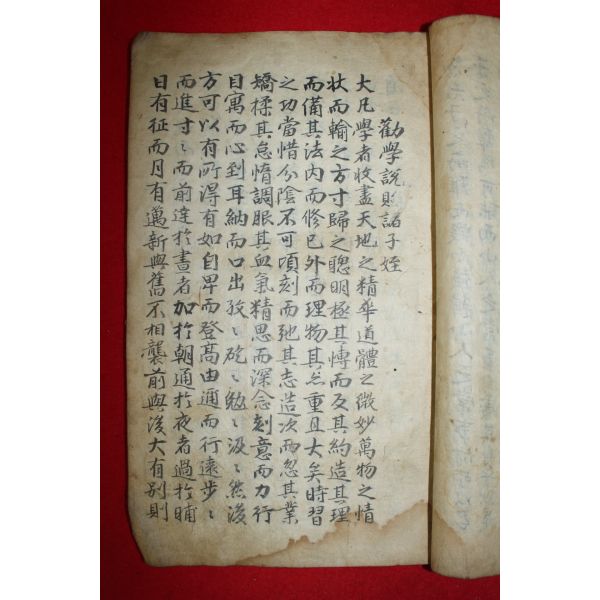 勸學說貽諸子姪
大凡學者收盡天地之精華道體之微妙萬物之情
狀而輸之方寸歸之聰明極其博而反其約造其理
而備其法內而修己外而理物其為重且大矣時習
之功當惜分陰不可頃刻而弛其志造次而忽其業
矯揉其怠惰調服其血氣精思而深念刻意而力行
目寓而心到耳納而口出孜〻矻〻勉〻汲〻然後
方可以有所得有如自卑而登高由邇而行遠步〻
而進寸〻而前達於晝者加於朝通於夜者過於晡
日有征而月有邁新與舊不相襲前與後大有別則